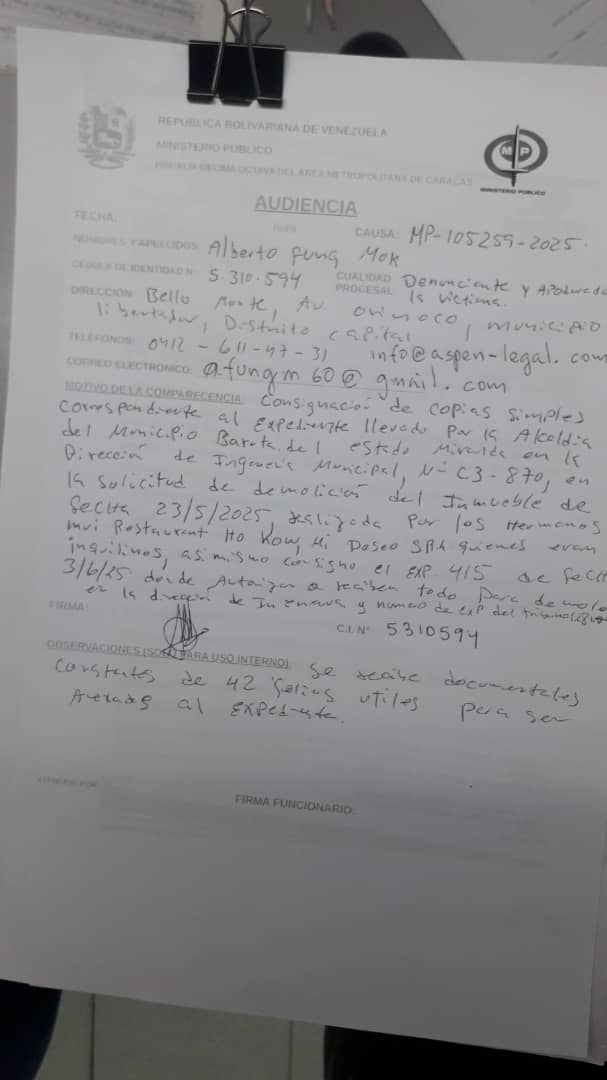 REPUBLICA BOLIVARIANA DE VENEZUELA
MINISTERIO PUBLICO
FISCALIA DECIMA OCTAVA DEL AREA METROPOLITANA DE CARACAS
MP
MINISTERIO PUBLICO
AUDIENCIA
FECHA:
CAUSA: MP-105259-2025.
NOMBRES Y APELLIDOS: Alberto fung Mok
CEDULA DE IDENTIDAD N: 5.310.594 CUALIDAD PROCESAL Denunciante y Apoderado
la victima.
DIRECCIÓN: Bello Monte, Av. orinoco, Municipio
libertador, Distrito capital
TELEFONOS: 0412-611-47-31 info@aspen-legal.com
CORREO ELECTRONICO: afungm60@gmail.com
MOTIVO DE LA COMPARECENCIA: Consignación de copias simples
correspondiente al Expediente llevado por la Alcaldia
del Municipio Baruta del estado Miranda en la
Dirección de Ingeneria Municipal, N- C3-870, en
la solicitud de demolición del Inmueble de
fecha 23/5/2025, realizada por los Hermanos
mui Restaurant Ho Kow, Mi Deseo SRL quienes eran
inquilinos, asi mismo consigno el EXP. 415 de fecha
3/6/25 donde Autorizan o reciben todo para demoler
en la dirección de y numero de exp del
FIRMA:
C.I.Nº 5310594
OBSERVACIONES (SOLO PARA USO INTERNO) Se recibe documentales
constantes de 42 folios utiles para ser
Anexados al Expediente.
ATENDIDO POR:
FIRMA FUNCIONARIO: